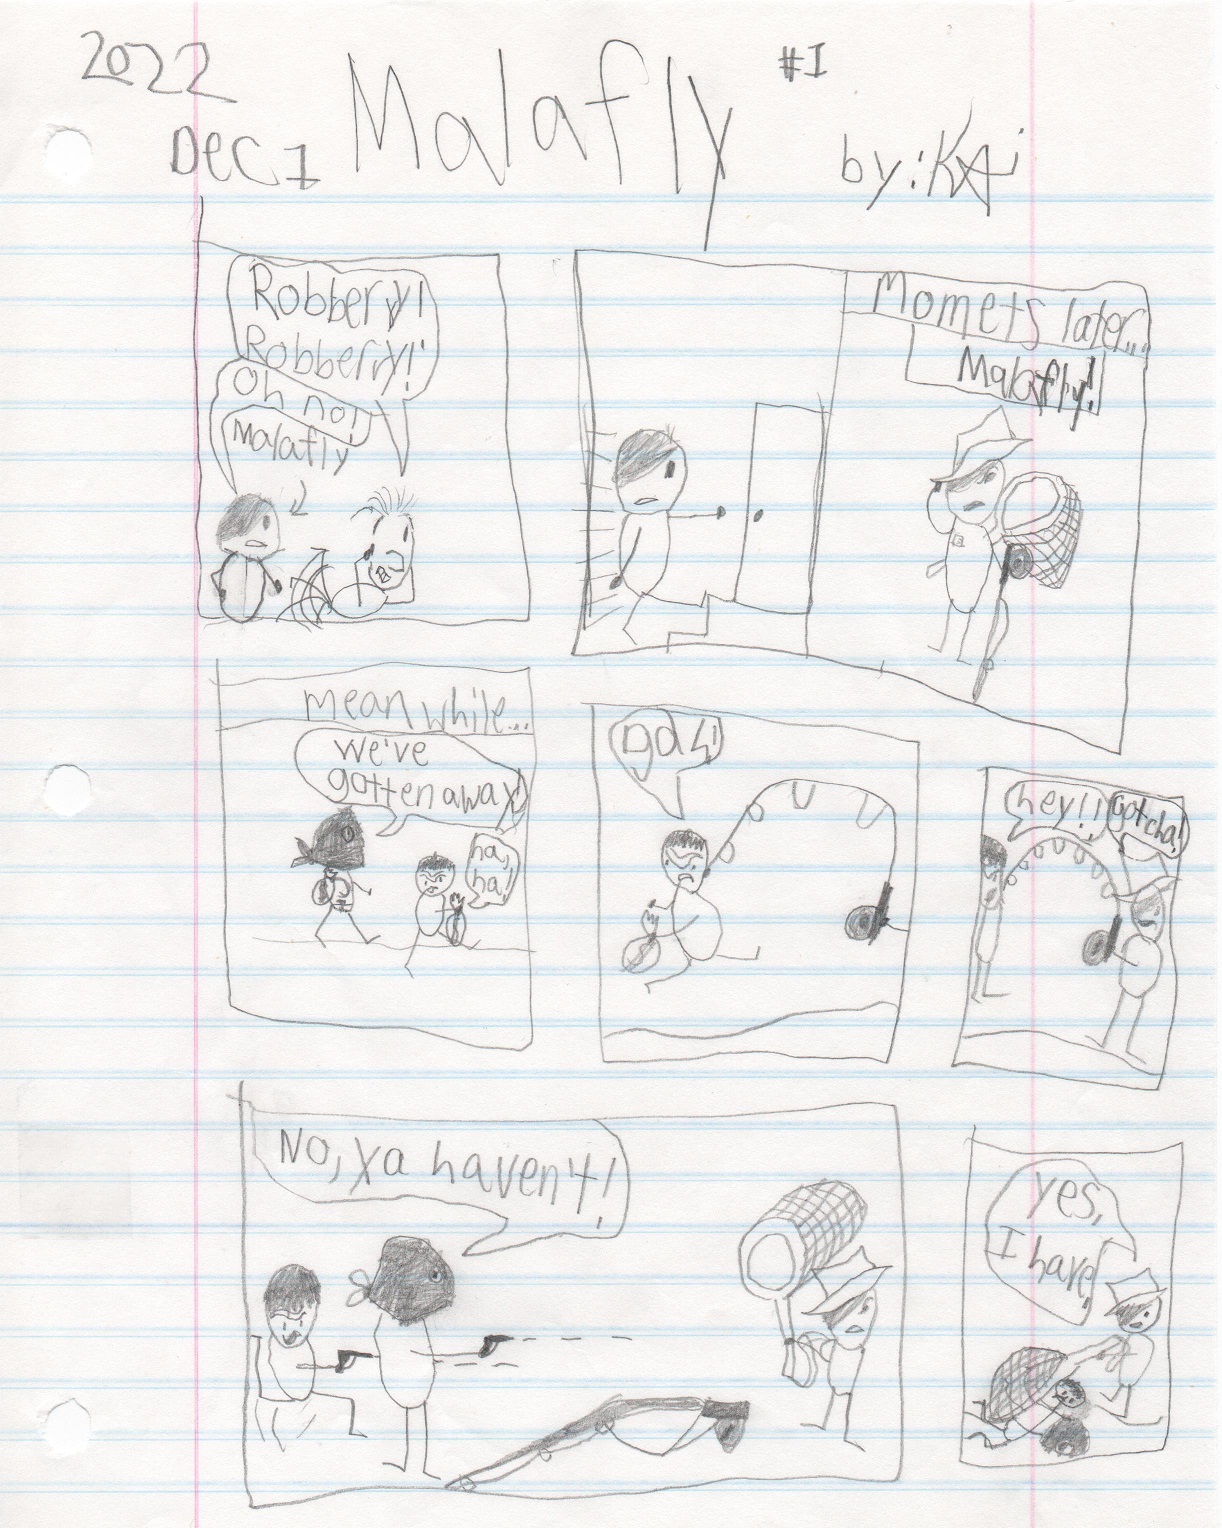 2022
Dec 1
Malafly
#1
by: KAi
Robberyy!
Robberryy!
Oh no!
Malafly
Momets later...
Malafly!
mean while...
We've
gotten away!
ha,
ha!
Gah!
hey!!
gotcha!
No, ya haven't!
yes,
I have!